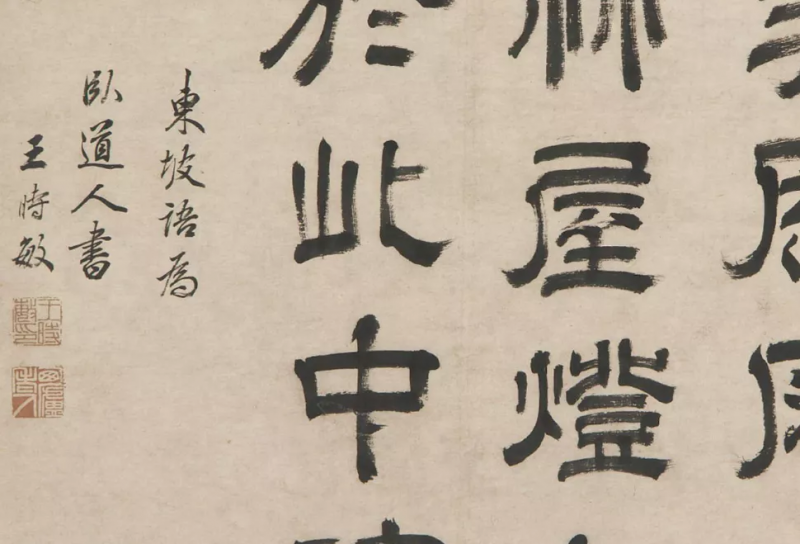 屋燈
於此中
東坡語為
臥道人書
王時敏
王時敏印